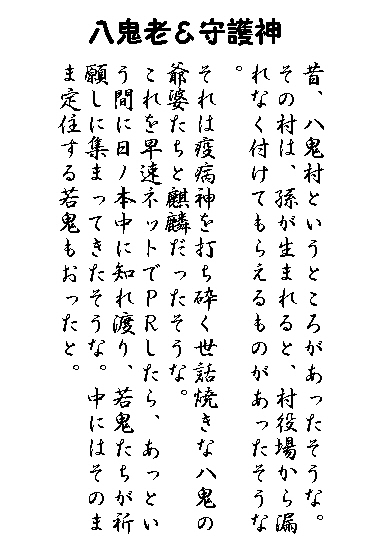 八鬼老&守護神
昔、八鬼村というところがあったそうな。
その村は、孫が生まれると、村役場から漏
れなく付けてもらえるものがあったそうな
。
それは疫病神を打ち砕く世話焼きな八鬼の
爺婆たちと麒麟だったそうな。
これを早速ネットでPRしたら、あっとい
う間に日ノ本中に知れ渡り、若鬼たちが祈
願しに集まってきたそうな。中にはそのま
ま定住する若鬼もおったと。